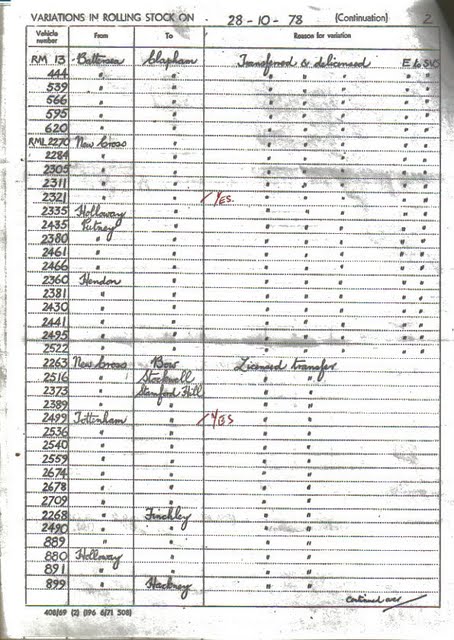 VARIATIONS IN ROLLING STOCK ON 28-10-78 (Continuation) 2
Vehicle number From To Reason for variation
RM 13 Battersea Clapham Transferred & delicensed E & SVS
444 " " " " " " "
539 " " " " " " "
566 " " " " " " "
595 " " " " " " "
620 " " " " " " "
RML 2270 New Cross " " " " " "
2284 " " " " " " "
2305 " " " " " " "
2311 " " " " " " "
2321 " " / YES. " " " " "
2335 Holloway " " " " " "
2435 Putney " " " " " "
2380 " " " " " " "
2461 " " " " " " "
2466 " " " " " " "
2360 Hendon " " " " " "
2381 " " " " " " "
2430 " " " " " " "
2441 " " " " " " "
2495 " " " " " " "
2522 " " " " " " "
2263 New Cross Bow Licensed transfer
2516 " Stockwell " "
2373 " Stamford Hill " "
2389 " " " "
2499 Tottenham " / YES " "
2536 " " " "
2540 " " " "
2559 " " " "
2674 " " " "
2678 " " " "
2709 " " " "
2268 " Finchley " "
2490 " " " "
889 " " " "
880 Holloway " " "
891 " " " "
899 " Hackney " "
continued over
408/69 (2) (196 6/71 308)